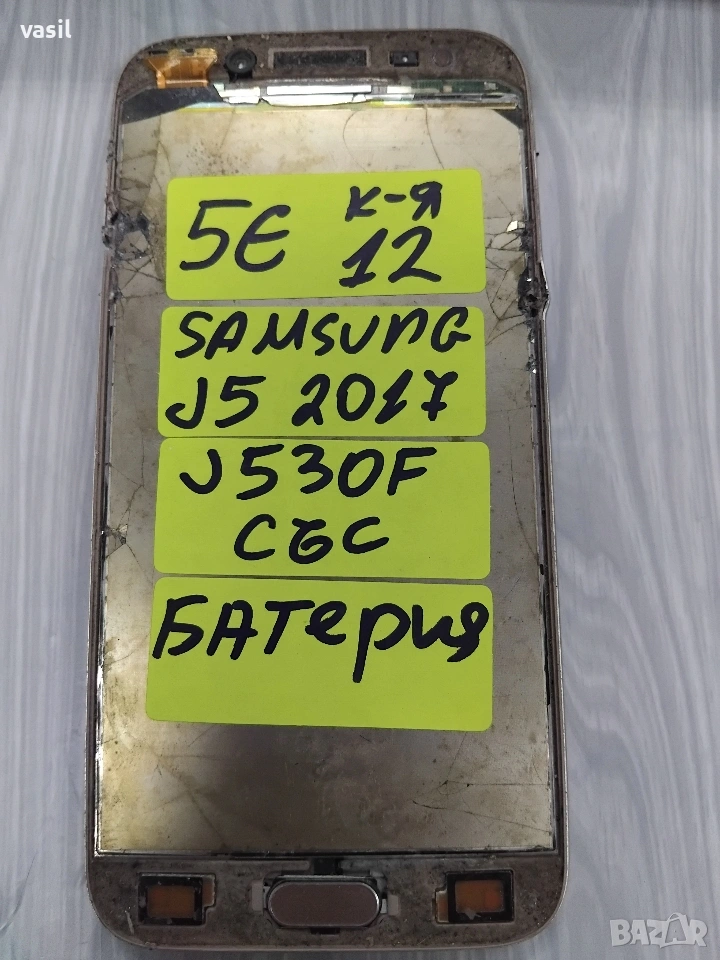 vasil
5Є к-я
12
SAMSUNG
J5 2017
J530F
СбС
БАТерия
BAZAR